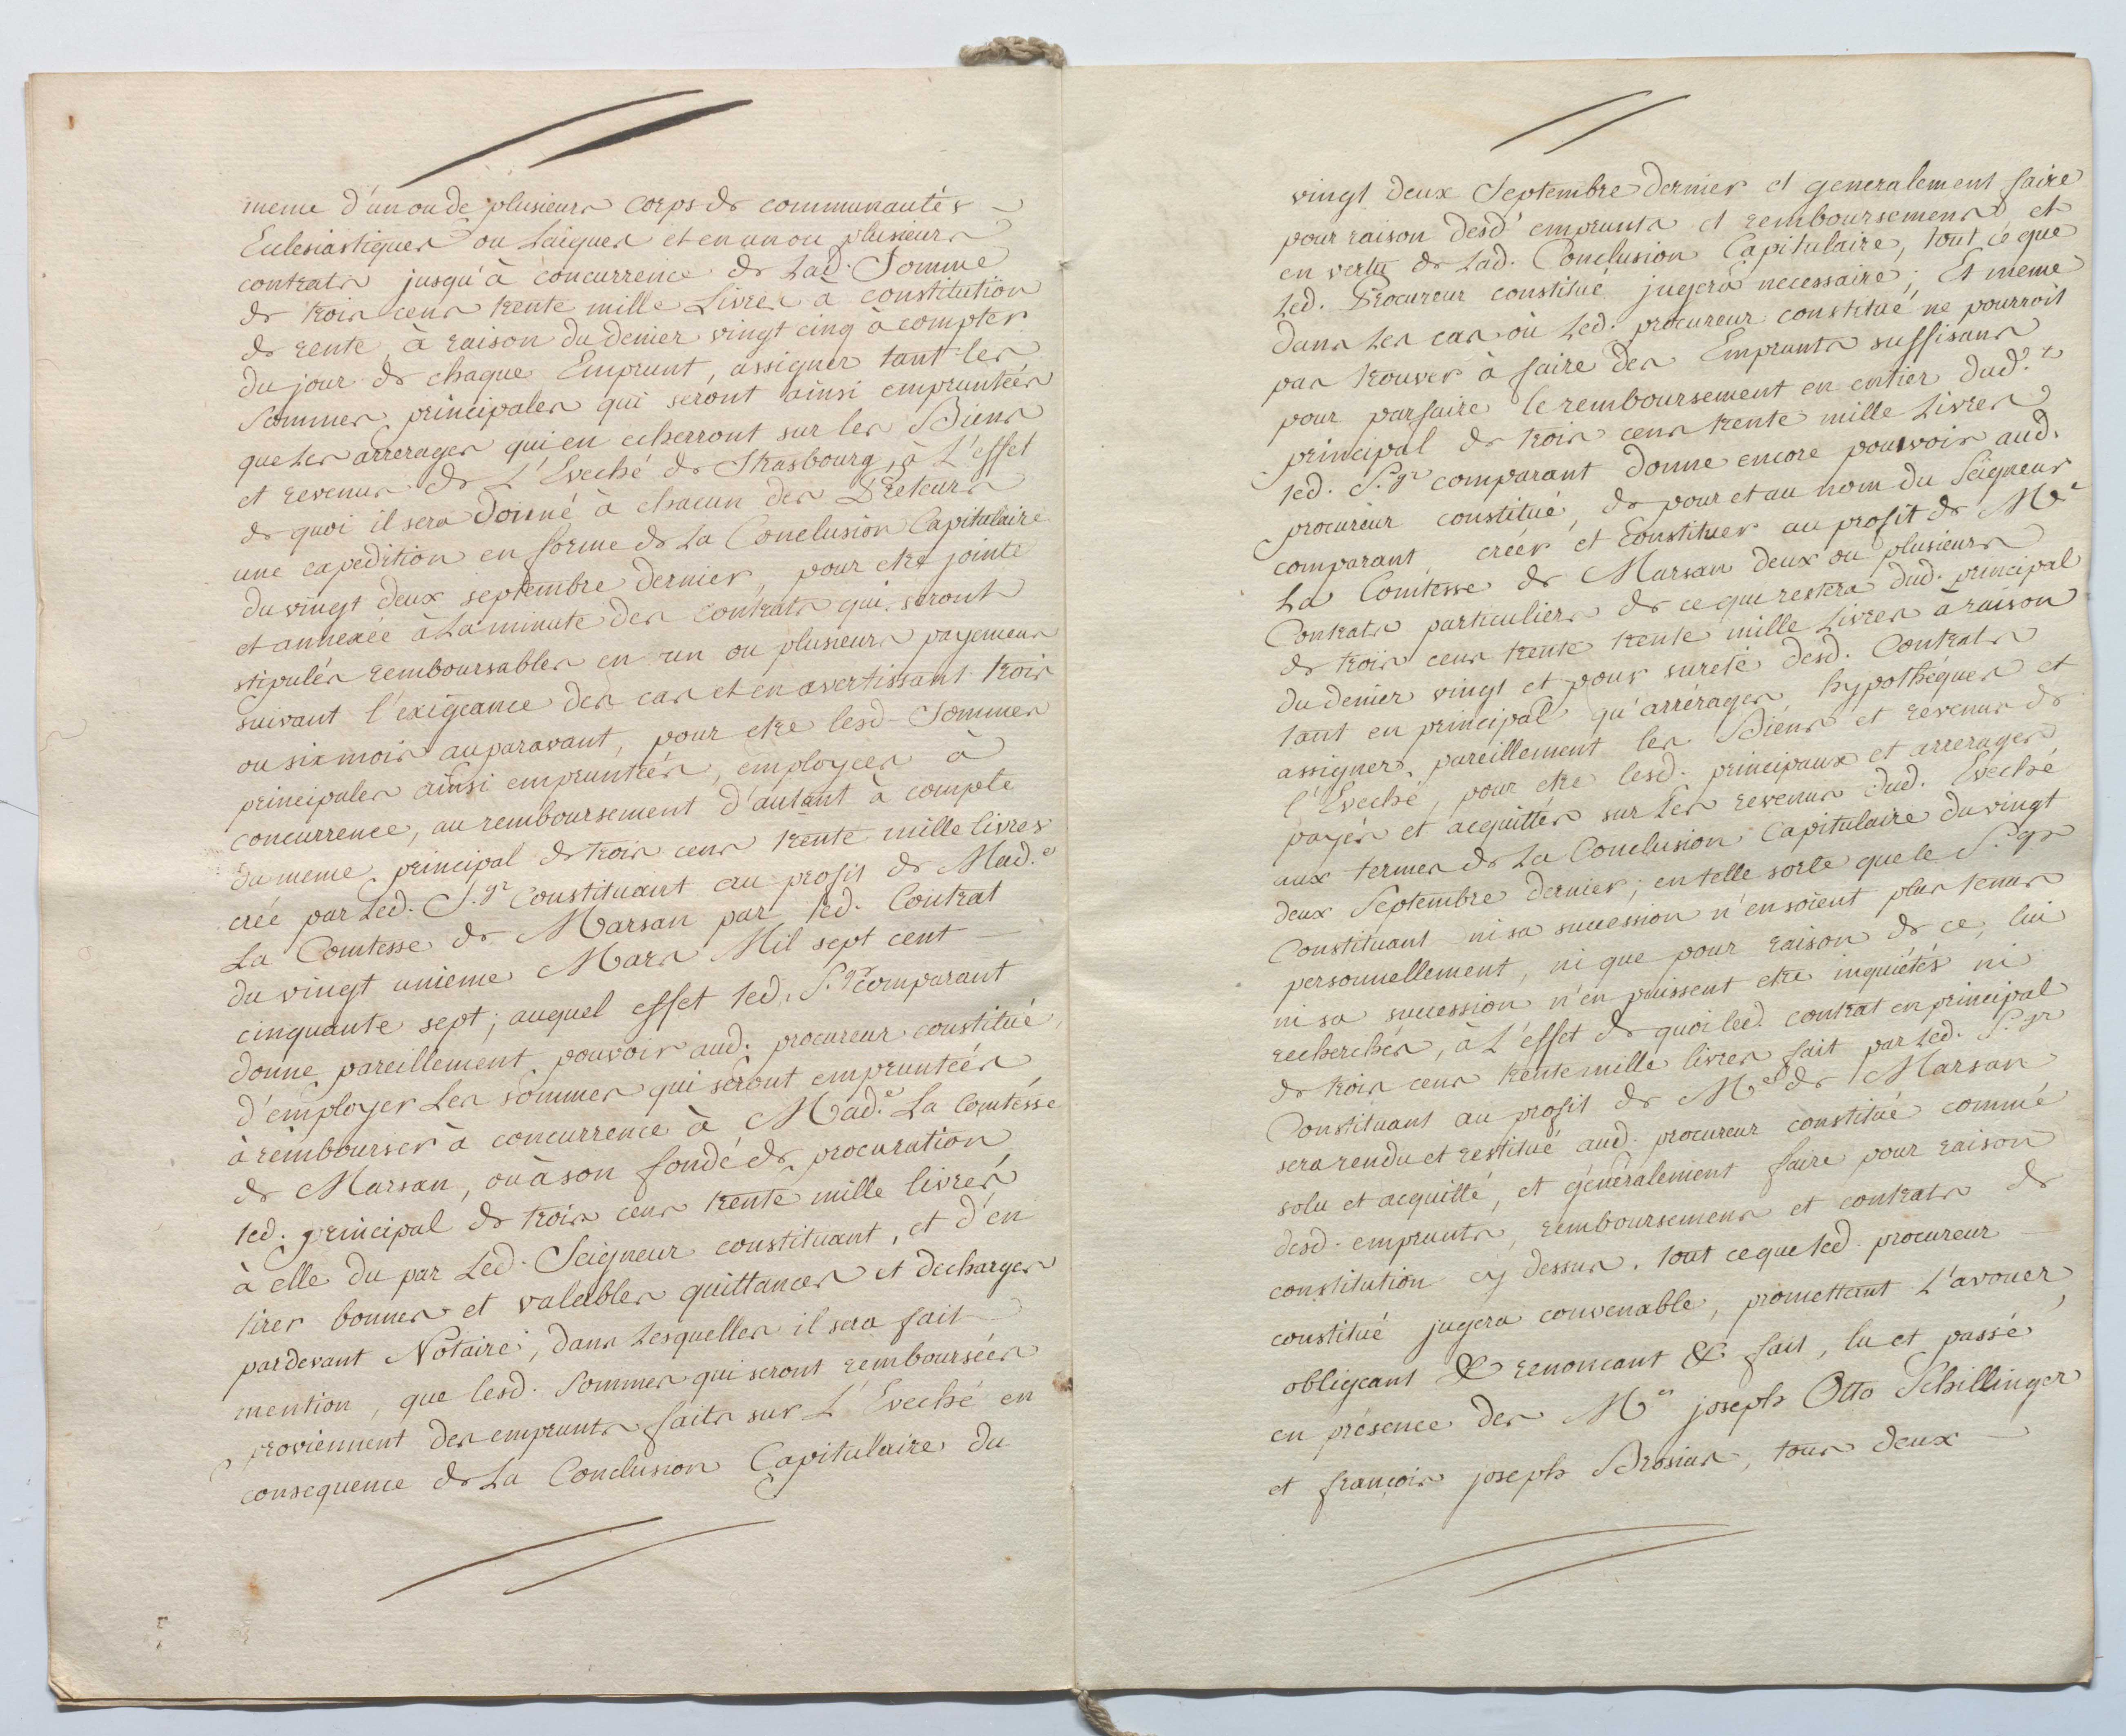 meme d'un ou de plusieurs corps de communautés
Eclesiastiques ou Laiques et en un ou plusieurs
contrats jusqu'à concurrence de Lad. Somme
de trois cens trente mille Livres à constitution
de rente, à raison du denier vingt cinq à compter
du jour de chaque Emprunt, assigner tant les
Sommes principales qui seront ainsi empruntées
que Les arrerages qui en echerront sur les Biens
et revenus de L'Eveché de Strasbourg, à L'effet
de quoi il sera donné à chacun des Preteurs
une expedition en forme de La Conclusion Capitulaire
du vingt deux septembre dernier, pour etre jointe
et annexée à La minute des Contrats qui seront
stipulés remboursables en un ou plusieurs payemens
suivant l'exigeance des cas et en avertissant trois
ou six mois auparavant, pour etre lesd. Sommes
principales ainsi empruntées, employées à
concurrence, au remboursement d'autant à compte
du meme principal de trois cens trente mille livres
créé par Led. S.gr Constituant au profit de Mad.e
La Comtesse de Marsan par led. Contrat
du vingt unieme Mars Mil sept cent
cinquante sept; auquel effet led. S.gr comparant
donne pareillement pouvoir aud. procureur constitué,
d'employer Les sommes qui seront empruntées
à rembourser à concurrence à Mad.e La Comtesse
de Marsan, ou à son fondé de procuration
led. principal de trois cens trente mille livres
à elle du par Led. Seigneur constituant, et d'en
tirer bonnes et valables quittances et decharges
pardevant Notaire, dans Lesquelles il sera fait
mention, que lesd. Sommes qui seront remboursées
proviennent des emprunts faits sur L'Eveché en
consequence de La Conclusion Capitullaire du
vingt deux Septembre dernier et generalement faire
pour raison desd' emprunts et remboursemens et
en vertu de Lad. Conclusion Capitulaire, tout ce que
Led. Procureur constitué jugera necessaire; Et meme
dans Les cas où Led. procureur constitué ne pourroit
pas trouver à faire des Emprunts suffisans
pour parfaire le remboursement en entier dud.t
principal de trois cens trente mille Livres
led. S.gr comparant donne encore pouvoir aud.
procureur constitué, de pour et au nom du Seigneur
comparant créer et Constituer au profit de Me
La Comtesse de Marsan deux ou plusieurs
Contrats particuliers de ce que restera dud. principal
de trois cens trente trente mille Livres à raison
du denier vingt et pour sureté desd. Contrats
tant en principal qu'arrérages hypothéquer et
assigner pareillement les Biens et revenus de
l'Eveché, pour etre lesd. principaux et arrerages
payés et acquittés sur Les revenus dud. Eveché
aux termes de La Conclusion Capitulaire du vingt
deux Septembre dernier; en telle sorte que le S.gr
Constituant ni sa succession n'en soient plus tenus
personnellement, ni que pour raison de ce, lui
ni sa succession n'en puissent etre inquiétés ni
recherchés, à L'effet de quoi led. contrat en principal
de trois cens trente mille livres fait par Led. S.gr
Constituant au profit de Me de Marsan
sera rendu et restitué aud. procureur constitué comme
solu et acquitté, et généralement faire pour raison
desd. emprunts, remboursemens et contrats de
constitution cy dessus. tout ce que led. procureur
constitué jugera convenable, promettant L'avouer
obligeant &c renoncant &c fait, lu et passé
en présence des Mes joseph Otto Schillinger
et françois joseph Brosius, tous deux